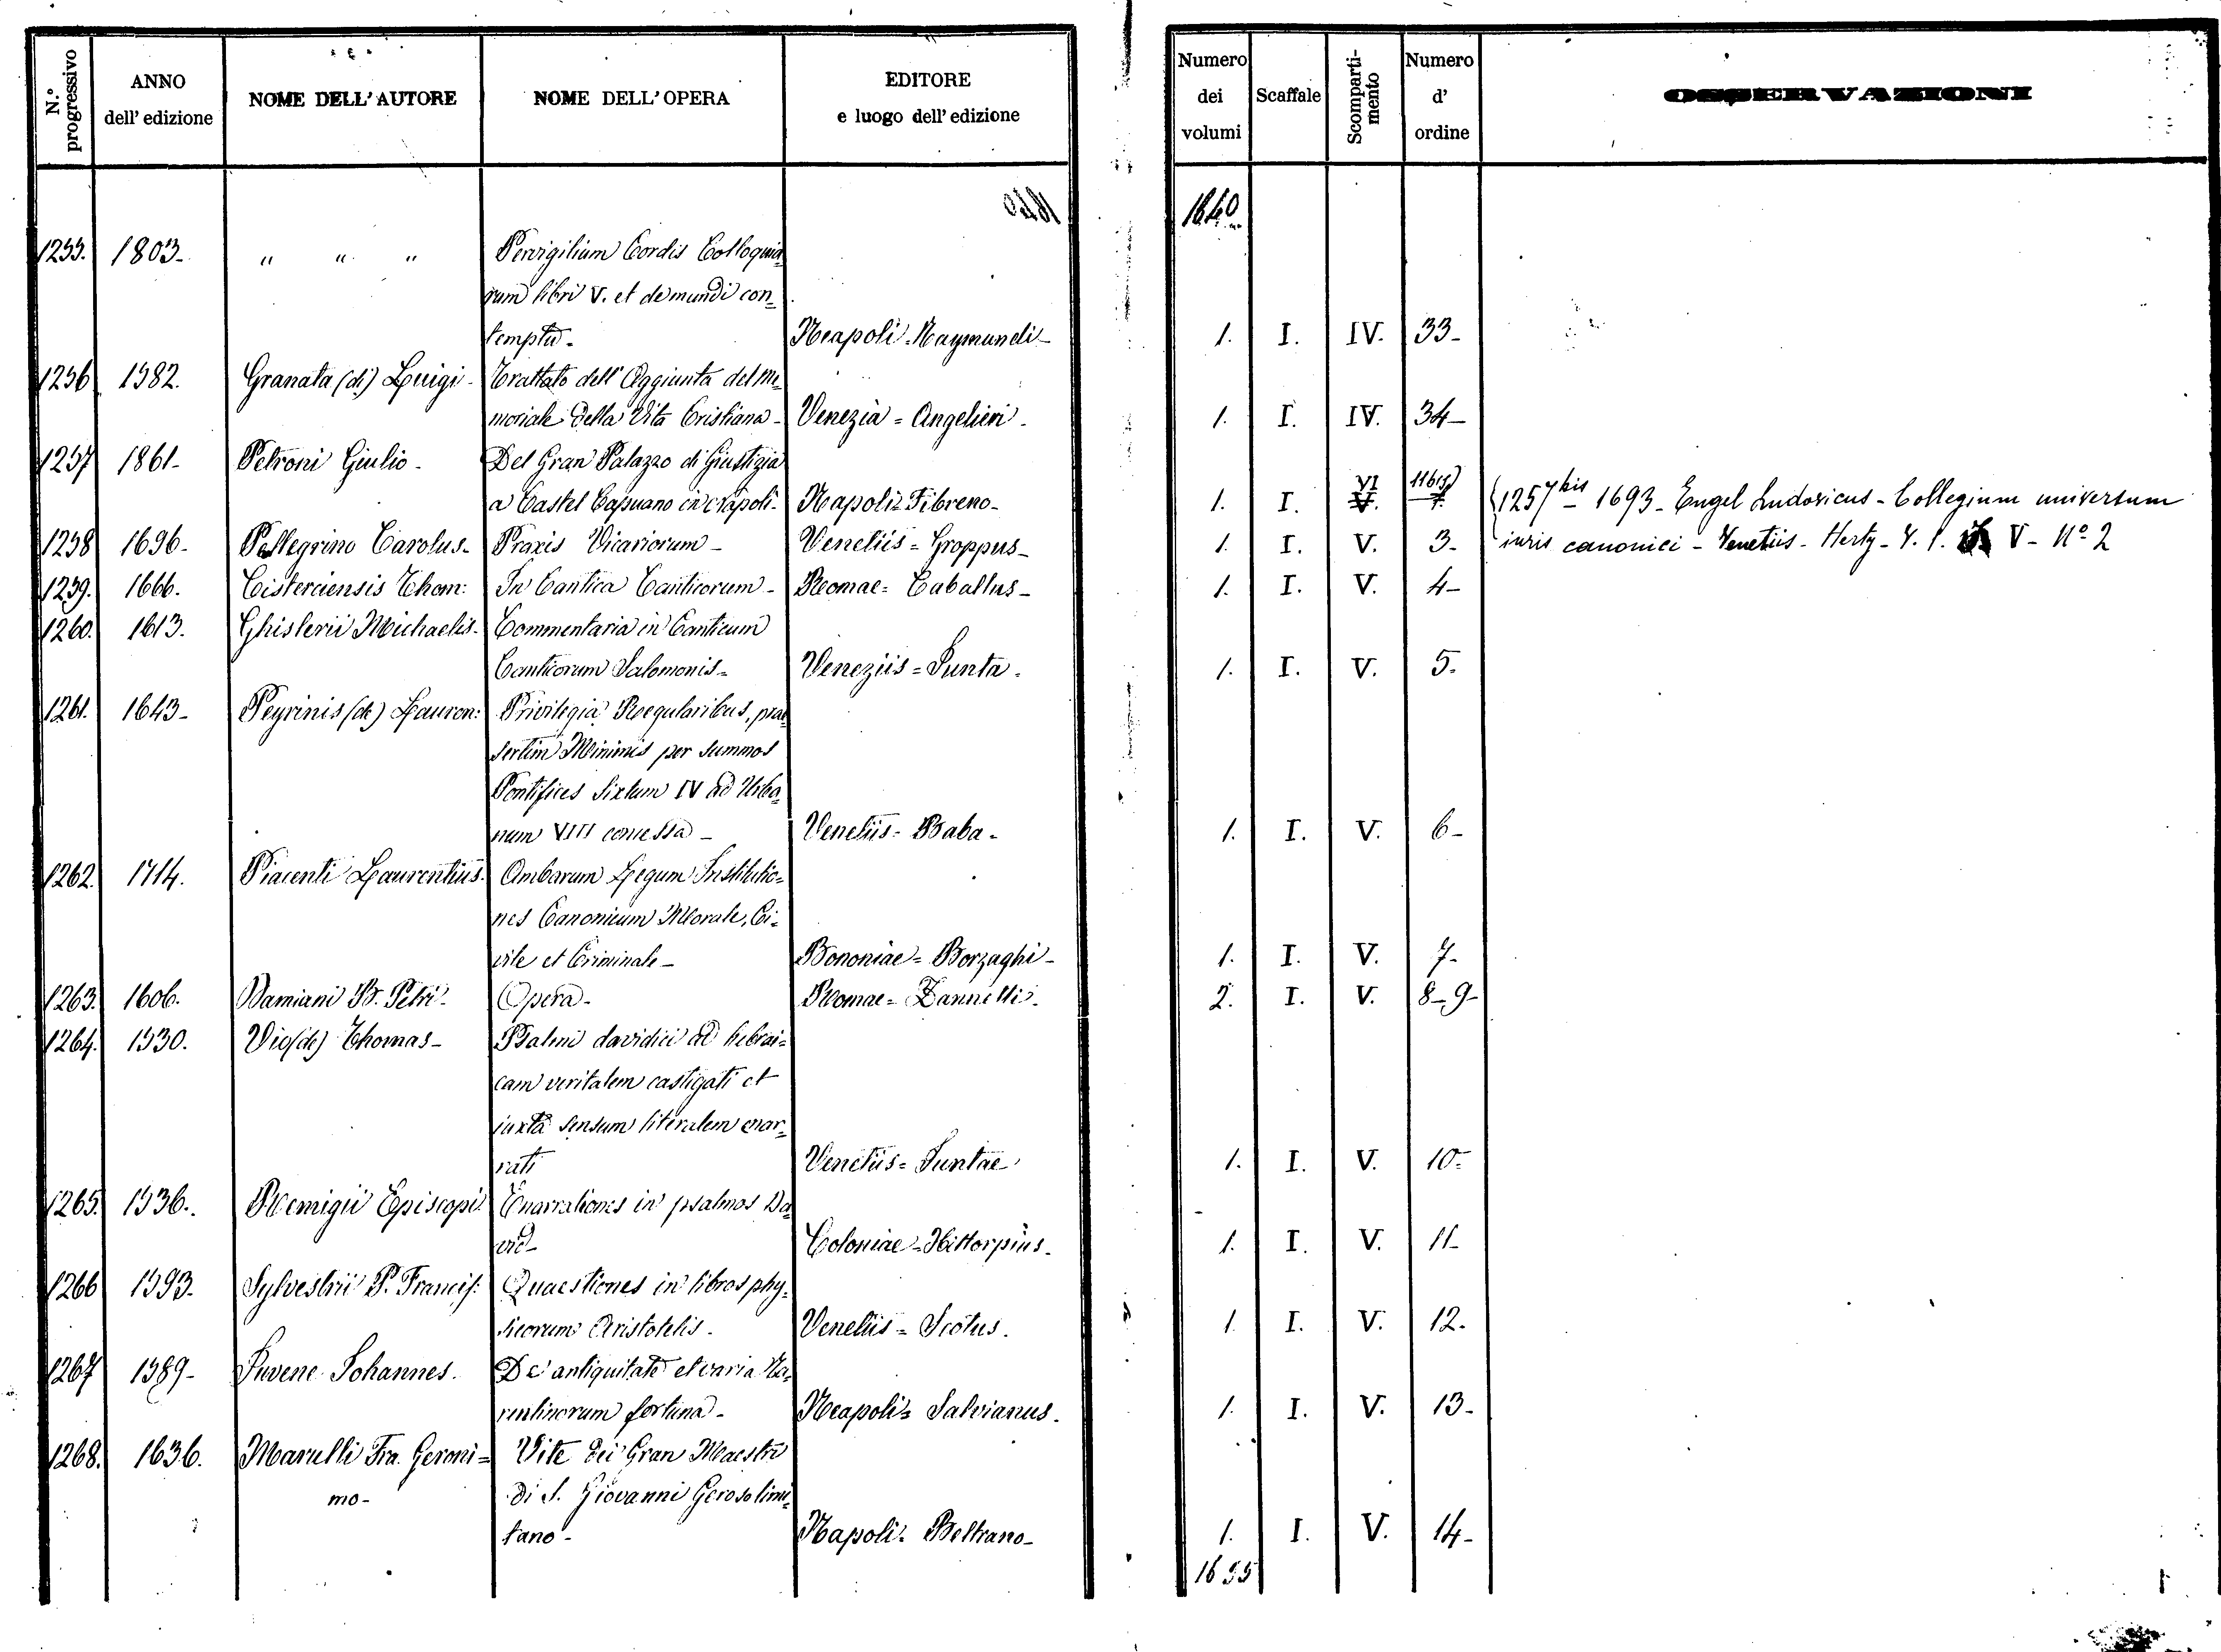 N.º progressivo
ANNO dell' edizione
NOME DELL' AUTORE
NOME DELL' OPERA
EDITORE e luogo dell' edizione
Numero dei volumi
Scaffale
Scomparti-mento
Numero d' ordine
OSSERVAZIONI
1640
1255. 1803- " " " Pervigilium Cordis Colloquio
rum libri V. et de mundi con-
temptu- Neapoli-Raymundi- 1. I. IV. 33-
1256 1582. Granata (di) Luigi- Trattato dell' Aggiunta del Me-
moriale della Vita Cristiana- Venezia = Angelieri. 1. I. IV. 34-
1257 1861- Petroni Giulio- Del Gran Palazzo di Giustizia
a Castel Capuano in Napoli- Napoli = Fibreno- 1. I. VI V. 116
(1257 bis 1693- Engel Ludovicus- Collegium universum
1258 1696- Pellegrino Carolus- Praxis Vicariorum- Venetiis = Groppus- 1. I. V. 3-
iuris canonici- Venetiis- Hertz- V. 1. V- Nº 2
1259. 1666. Cisterciensis Thom: In Cantica Canticorum- Romae = Caballus- 1. I. V. 4-
1260. 1613. Ghislerii Michaelis- Commentaria in Canticum
Canticorum Salomonis- Veneziis = Junta. 1. I. V. 5.
1261. 1643- Peyrinis (de) Lauren: Privilegia Regularibus, prae
sertim Minimis per summos
Pontifices Sixtum IV ad Urba-
num VIII concessa- Venetiis = Baba- 1. I. V. 6-
1262. 1714. Piacenti Laurentius. Ambarum Legum Institutio-
nes Canonicum Morale, Ci-
vile et Criminale- Bononiae = Borzaghi- 1. I. V. 7-
1263. 1606. Damiani B. Petri- Opera- Romae = Zannetti- 2. I. V. 8-9-
1264. 1530. Vio (de) Thomas- Psalmi davidici ad hebrai-
cam veritatem castigati et
iuxta sensum literalem enar-
rati Venetiis = Juntae 1. I. V. 10-
1265. 1536. Remigii Episcopi Enarrationes in psalmos Da
vid- Coloniae = Hittorpius. 1. I. V. 11-
1266 1593. Sylvestrii P. Francis: Quaestiones in libros phy-
sicorum Aristotelis. Venetiis = Scotus. 1. I. V. 12.
1267 1589- Juvene Johannes. De antiquitate et varia Ta-
rentinorum fortuna- Neapoli = Salvianus. 1. I. V. 13-
1268. 1636. Marulli Fra. Geroni= Vite dei Gran Maestri
mo- di S. Giovanni Gerosolimi-
tano- Napoli = Beltrano- 1. I. V. 14-
1655